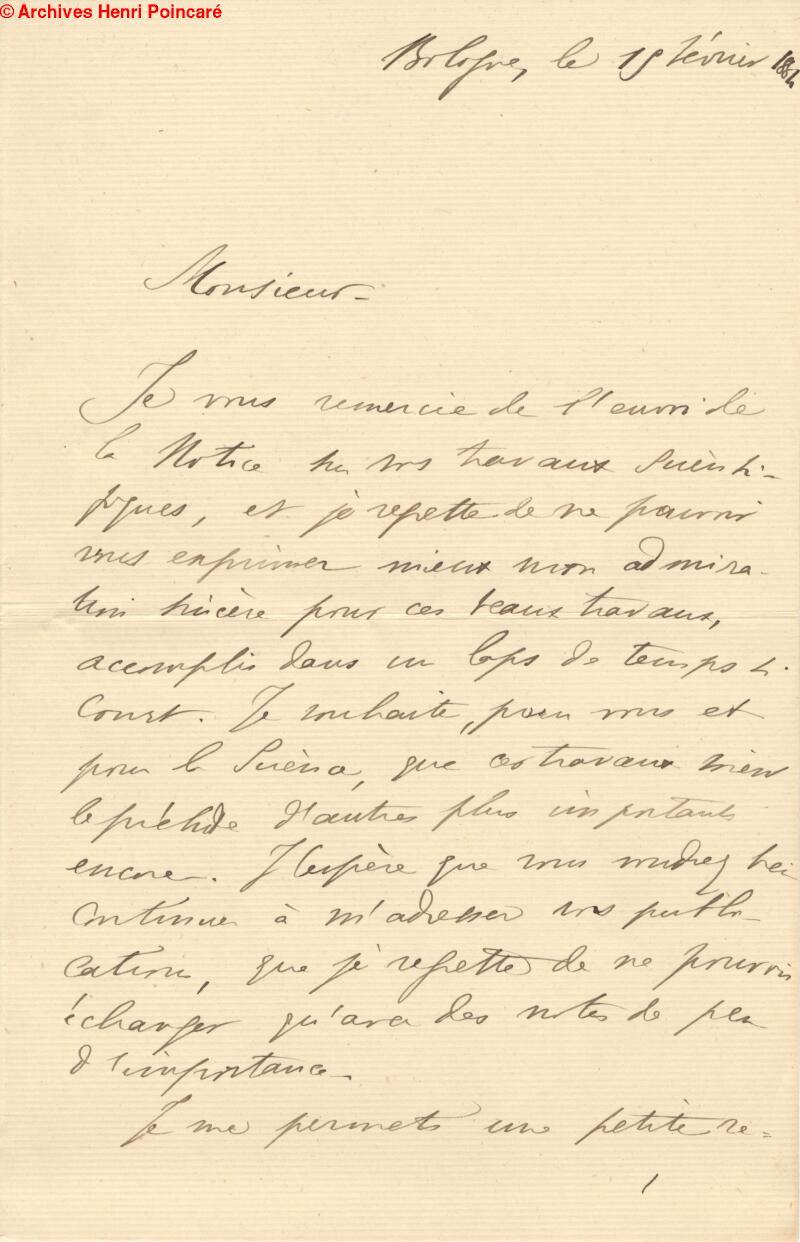 © Archives Henri Poincaré
Bologne, le 15 février 1884
Monsieur -
Je vous remercie de l'envoi de
la Notice sur vos travaux scienti-
fiques, et je regrette de ne pouvoir
vous exprimer mieux mon admira-
tion sincère pour ces beaux travaux,
accomplis dans un laps de temps si
court. Je souhaite, pour vous et
pour la Science, que ces travaux soient
le prélude d'autres plus importants
encore. J'espère que vous voudrez bien
continuer à m'adresser vos publi-
cations, que je regrette de ne pouvoir
échanger qu'avec des notes de peu
d'importance.
Je me permets une petite re=
1